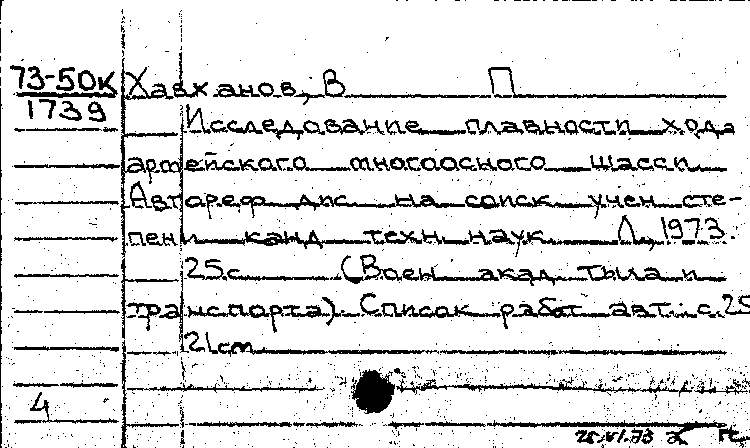 73-50К Хавханов, В П
1739
Исследование плавности хода
армейского многоосного шасси
Автореф дис на соиск учен сте-
пени канд техн наук Л., 1973.
25с (Воен акад тыла и
транспорта). Список работ авт. с.25
21cm
4
25.VI.73